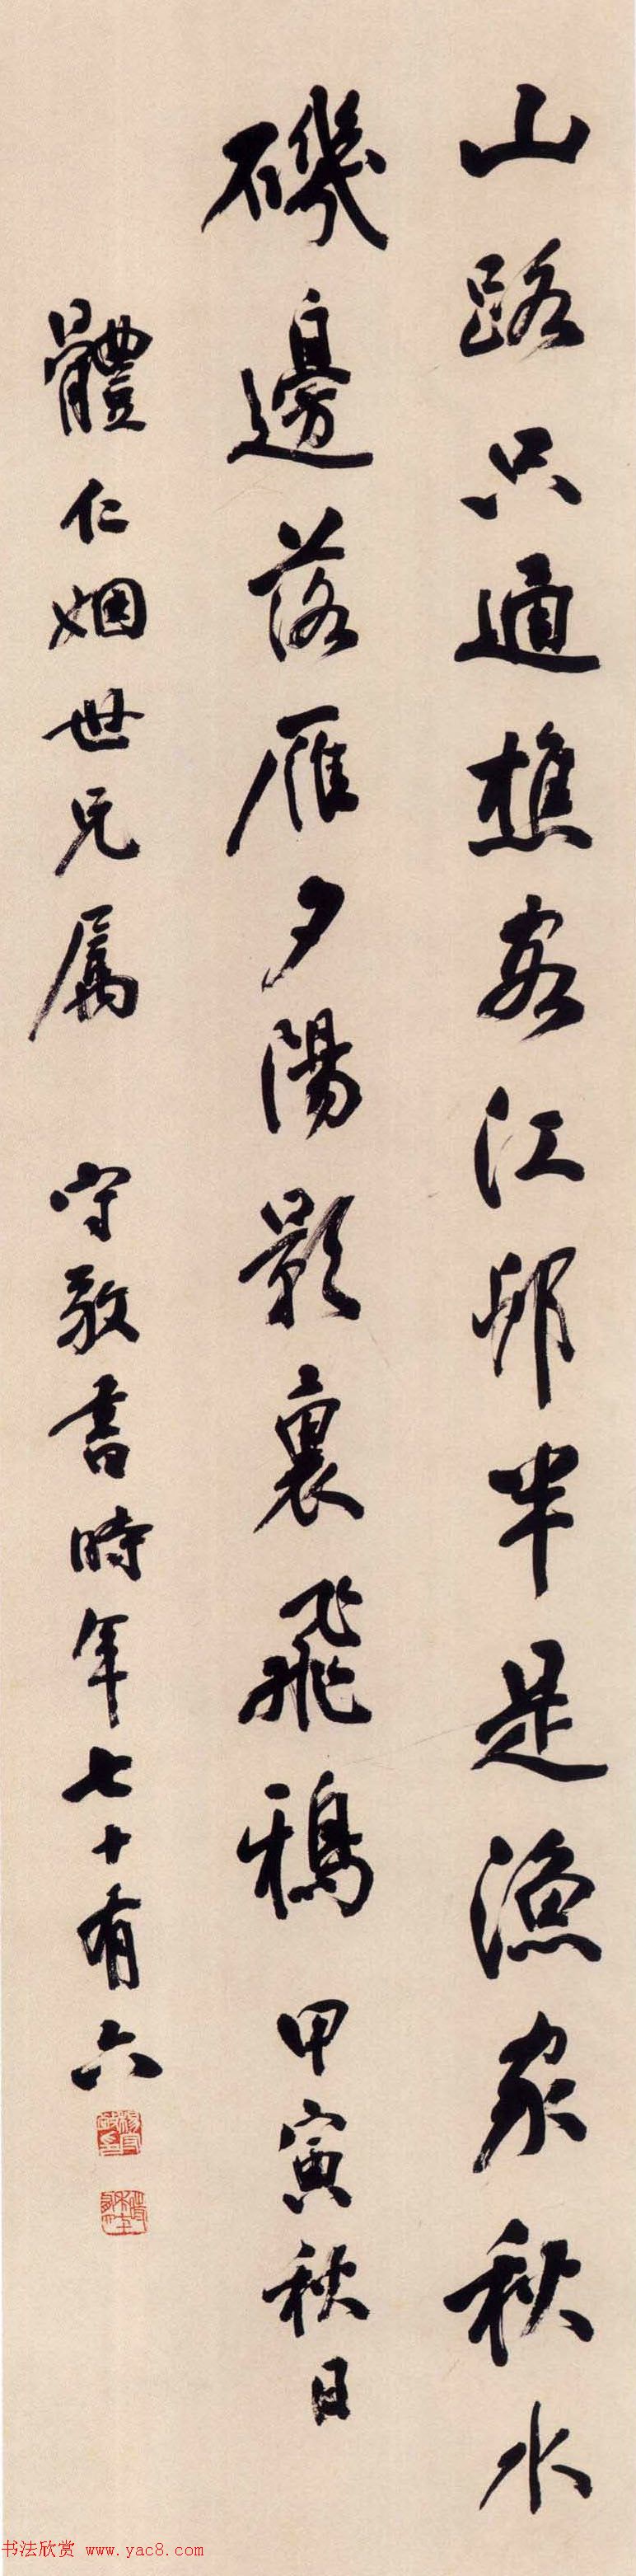 山路只通樵客江邨半是漁家秋水
磯邊落雁夕陽影裏飛鴉 甲寅秋日
體仁姻世兄属 守敬書時年七十有六
书法欣赏 www.yac8.com